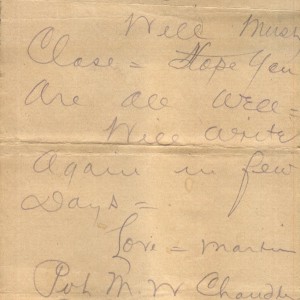 Will Must
Close = Hope You
Are all well =
Will write
Again in few
Days =
Love = Martin
Pvt M. W Chandl